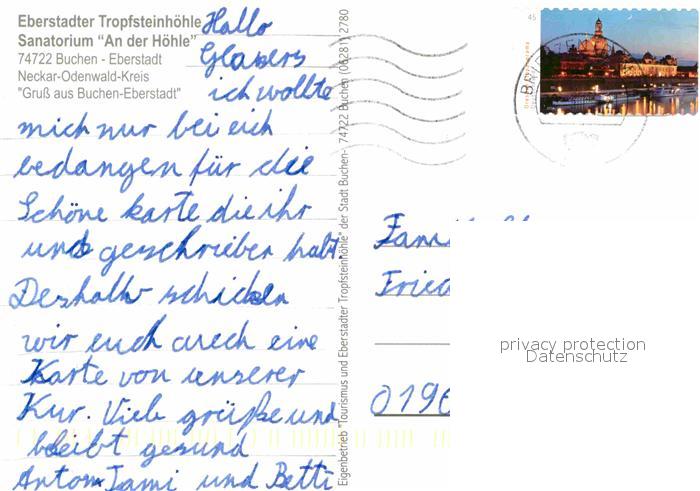 Eberstadter Tropfsteinhöhle
Sanatorium "An der Höhle"
74722 Buchen - Eberstadt
Neckar-Odenwald-Kreis
"Gruß aus Buchen-Eberstadt"
Hallo
Glasers
ich wollte
mich nur bei eich
bedangen für die
Schöne karte die ihr
uns geschrieben habt.
Deshalb schicken
wir euch auch eine
Karte von unserer
Kur. Viele grüße und
bleibt gesund
Anton Jami und Betti
Eigenbetrieb "Tourismus und Eberstadter Tropfsteinhöhle" der Stadt Buchen- 74722 Buchen (06281) 2780
45
privacy protection
Datenschutz
0196